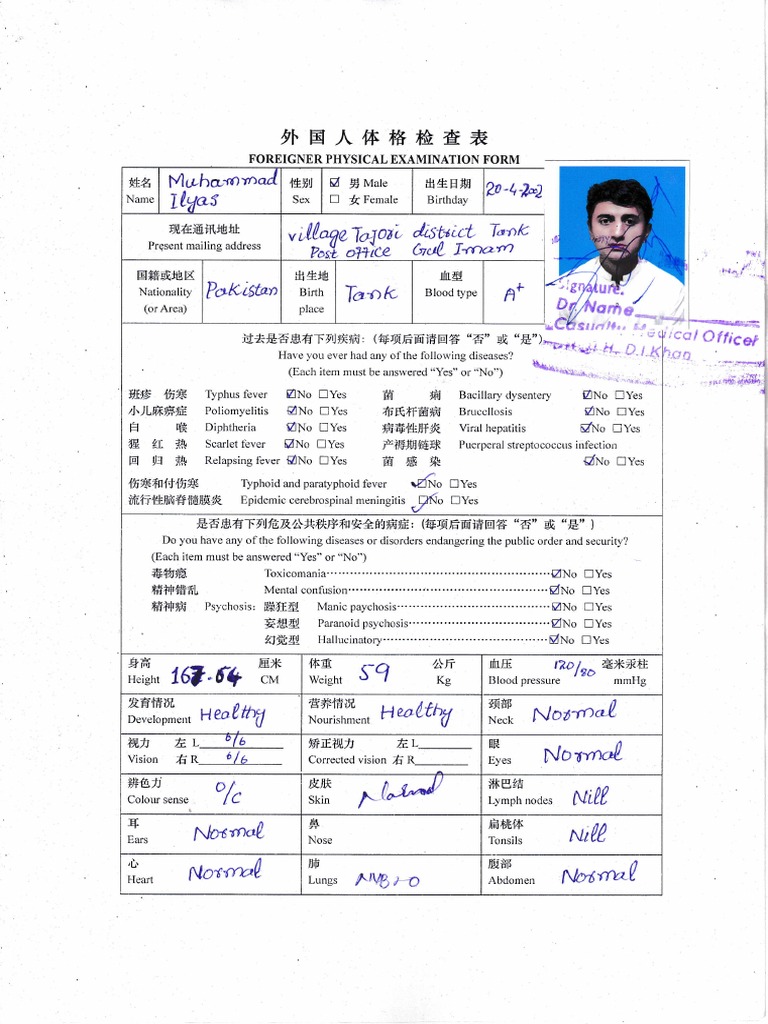 外国人体格检查表
FOREIGNER PHYSICAL EXAMINATION FORM
姓名 Name Muhammad Ilyas 性别 Sex ☑ 男 Male ☐ 女 Female 出生日期 Birthday 20-4-2002
现在通讯地址 Present mailing address village Tajori district Tank Post office Gul Imam
国籍或地区 Nationality (or Area) Pakistan 出生地 Birth place Tank 血型 Blood type A+
Signature.
Dr. Name
Casualty Medical Officer
D.I.Khan
过去是否患有下列疾病：(每项后面请回答“否”或“是”)
Have you ever had any of the following diseases?
(Each item must be answered “Yes” or “No”)
班疹 伤寒 Typhus fever ☑No ☐Yes 菌 痢 Bacillary dysentery ☑No ☐Yes
小儿麻痹症 Poliomyelitis ☑No ☐Yes 布氏杆菌病 Brucellosis ☑No ☐Yes
白 喉 Diphtheria ☑No ☐Yes 病毒性肝炎 Viral hepatitis ☑No ☐Yes
猩 红 热 Scarlet fever ☑No ☐Yes 产褥期链球 Puerperal streptococcus infection
回 归 热 Relapsing fever ☑No ☐Yes 菌 感 染 ☑No ☐Yes
伤寒和付伤寒 Typhoid and paratyphoid fever ☑No ☐Yes
流行性脑脊髓膜炎 Epidemic cerebrospinal meningitis ☑No ☐Yes
是否患有下列危及公共秩序和安全的病症：(每项后面请回答“否”或“是”)
Do you have any of the following diseases or disorders endangering the public order and security?
(Each item must be answered “Yes” or “No”)
毒物瘾 Toxicomania ☑No ☐Yes
精神错乱 Mental confusion ☑No ☐Yes
精神病 Psychosis: 躁狂型 Manic paychosis ☑No ☐Yes
妄想型 Paranoid psychosis ☑No ☐Yes
幻觉型 Hallucinatory ☑No ☐Yes
身高 Height 167.64 厘米 CM 体重 Weight 59 公斤 Kg 血压 Blood pressure 120/80 毫米汞柱 mmHg
发育情况 Development Healthy 营养情况 Nourishment Healthy 颈部 Neck Normal
视力 Vision 左 L 6/6 右 R 6/6 矫正视力 Corrected vision 左 L 右 R 眼 Eyes Normal
辨色力 Colour sense O/C 皮肤 Skin Normal 淋巴结 Lymph nodes Nill
耳 Ears Normal 鼻 Nose 扁桃体 Tonsils Nill
心 Heart Normal 肺 Lungs 腹部 Abdomen Normal